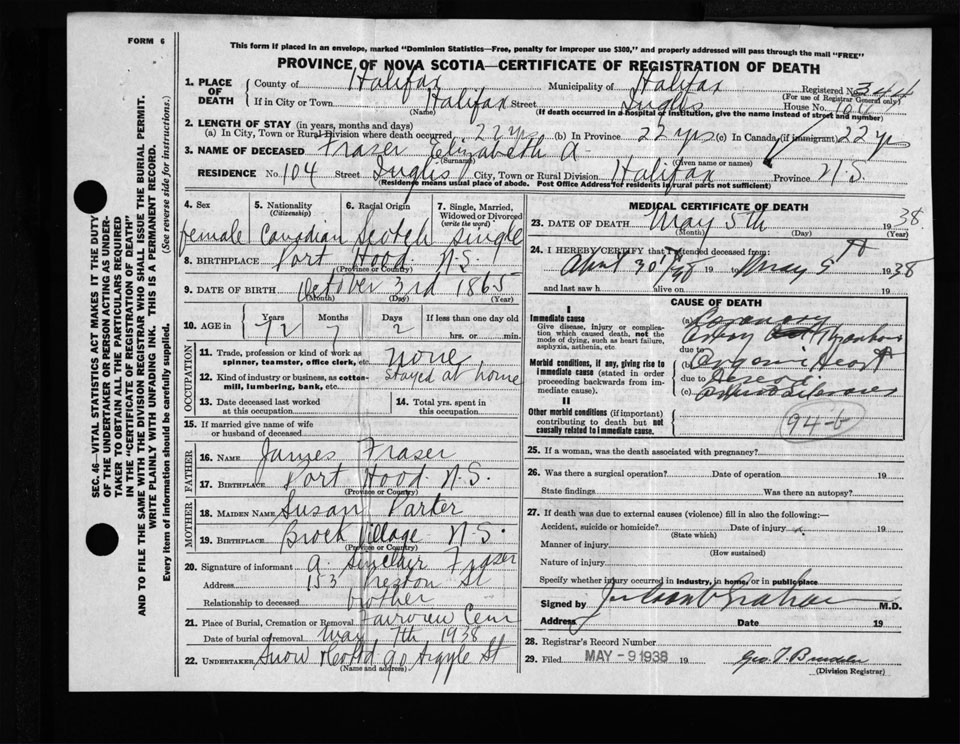 FORM 6
This form if placed in an envelope, marked "Dominion Statistics—Free, penalty for improper use $300," and properly addressed will pass through the mail "FREE"
PROVINCE OF NOVA SCOTIA—CERTIFICATE OF REGISTRATION OF DEATH
1. PLACE OF DEATH County of Halifax Municipality of Halifax Registered No. 344
(For use of Registrar General only)
If in City or Town Halifax Street Inglis House No. 104
(Name) (If death occurred in a hospital or institution, give the name instead of street and number)
2. LENGTH OF STAY (in years, months and days)
(a) In City, Town or Rural Division where death occurred 22 yrs (b) In Province 22 yrs (c) In Canada (if immigrant) 22 yrs
3. NAME OF DECEASED Fraser Elizabeth A.
(Surname) (Given name or names)
RESIDENCE No. 104 Street Inglis City, Town or Rural Division Halifax Province N.S.
(Residence means usual place of abode. Post Office Address for residents in rural parts not sufficient)
4. Sex female
5. Nationality (Citizenship) Canadian
6. Racial Origin Scotch
7. Single, Married, Widowed or Divorced (write the word) Single
8. BIRTHPLACE Port Hood N.S.
(Province or Country)
9. DATE OF BIRTH October 3rd 1865
(Month) (Day) (Year)
10. AGE in Years 72 Months 7 Days 2 If less than one day old
hrs. or min.
OCCUPATION
11. Trade, profession or kind of work as spinner, teamster, office clerk, etc. none
12. Kind of industry or business, as cotton-mill, lumbering, bank, etc. Stayed at home
13. Date deceased last worked at this occupation
14. Total yrs. spent in this occupation
15. If married give name of wife or husband of deceased
FATHER
16. NAME James Fraser
17. BIRTHPLACE Port Hood N.S.
(Province or Country)
MOTHER
18. MAIDEN NAME Susan
19. BIRTHPLACE Village N.S.
(Province or Country)
20. Signature of informant A. Sinclair Fraser
Address 153 Preston St
Relationship to deceased brother
21. Place of Burial, Cremation or Removal Fairview Cem
Date of burial or removal May 7th 1938
22. UNDERTAKER Snow 90 Argyle St
(Name and address)
MEDICAL CERTIFICATE OF DEATH
23. DATE OF DEATH May 5th 1938
(Month) (Day) (Year)
24. I HEREBY CERTIFY that I attended deceased from:
April 30 19 to May 5th 1938
and last saw h alive on 19
CAUSE OF DEATH
I
Immediate cause
Give disease, injury or complication which caused death, not the mode of dying, such as heart failure, asphyxia, asthenia, etc.
(a) Coronary
due to
Morbid conditions, if any, giving rise to immediate cause (stated in order proceeding backwards from immediate cause).
(b) Heart
due to Disease
(c)
II
Other morbid conditions (if important) contributing to death but not causally related to immediate cause.
94-b
25. If a woman, was the death associated with pregnancy?
26. Was there a surgical operation? Date of operation 19
State findings Was there an autopsy?
27. If death was due to external causes (violence) fill in also the following:—
Accident, suicide or homicide? Date of injury 19
(State which)
Manner of injury
(How sustained)
Nature of injury
Specify whether injury occurred in industry, in home, or in public place
Signed by Graham M.D.
Address Date 19
28. Registrar's Record Number
29. Filed MAY -9 1938 19
(Division Registrar)
SEC. 46—VITAL STATISTICS ACT MAKES IT THE DUTY
OF THE UNDERTAKER OR PERSON ACTING AS UNDERTAKER TO OBTAIN ALL THE PARTICULARS REQUIRED
IN THE "CERTIFICATE OF REGISTRATION OF DEATH"
AND TO FILE THE SAME WITH THE DIVISION REGISTRAR WHO SHALL ISSUE THE BURIAL PERMIT.
WRITE PLAINLY WITH UNFADING INK. THIS IS A PERMANENT RECORD.
Every item of information should be carefully supplied. (See reverse side for instructions.)